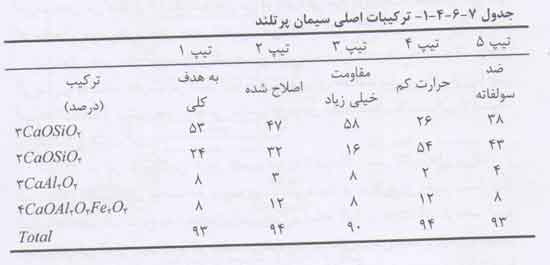 جدول ۷-۶-۴-۱- ترکیبات اصلی سیمان پرتلند
تیپ ۱ تیپ ۲ تیپ ۳ تیپ ۴ تیپ ۵
ترکیب (درصد) به هدف کلی اصلاح شده مقاومت خیلی زیاد حرارت کم ضد سولفاته
۳CaOSiO۲ ۵۳ ۴۷ ۵۸ ۲۶ ۳۸
۲CaOSiO۲ ۲۴ ۳۲ ۱۶ ۵۴ ۴۳
۳CaAl۲O۳ ۸ ۳ ۸ ۲ ۴
۴CaOAl۲O۳Fe۲O۳ ۸ ۱۲ ۸ ۱۲ ۸
Total ۹۳ ۹۴ ۹۰ ۹۴ ۹۳